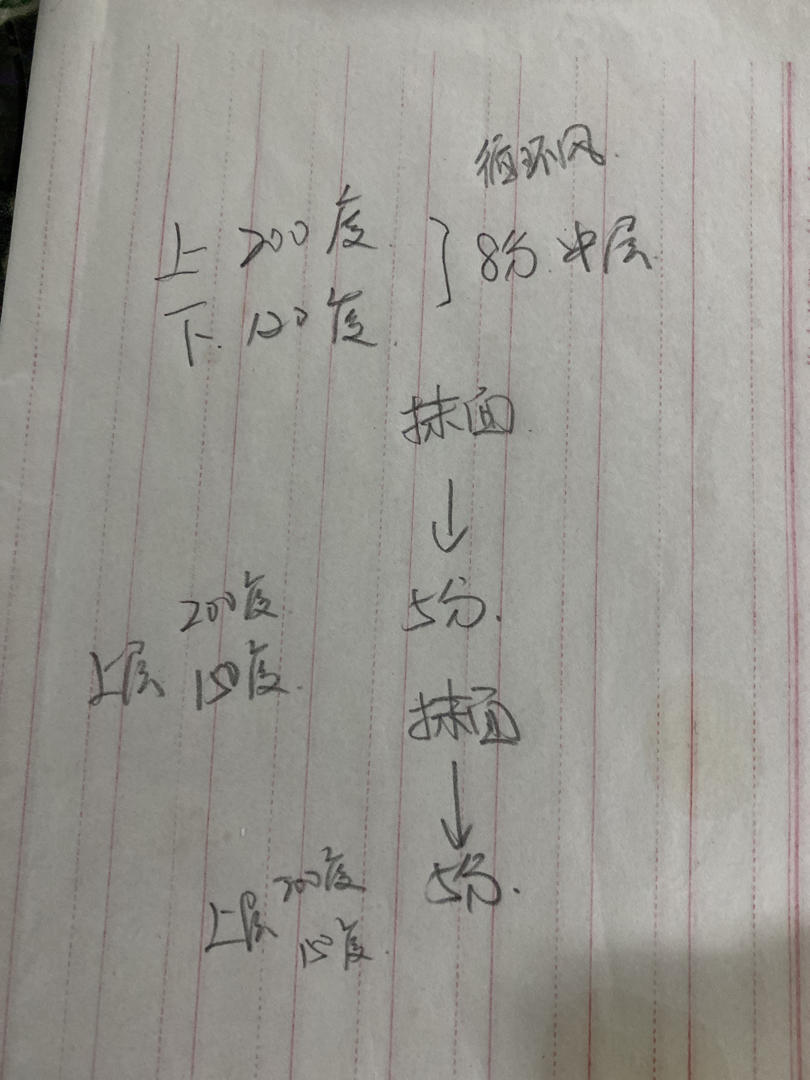 循环风.
上 200度 } 8分. 中层
下. 120度.
抹面
↓
200度 5分.
上层 150度.
抹面
↓
上层 200度 5分.
150度.